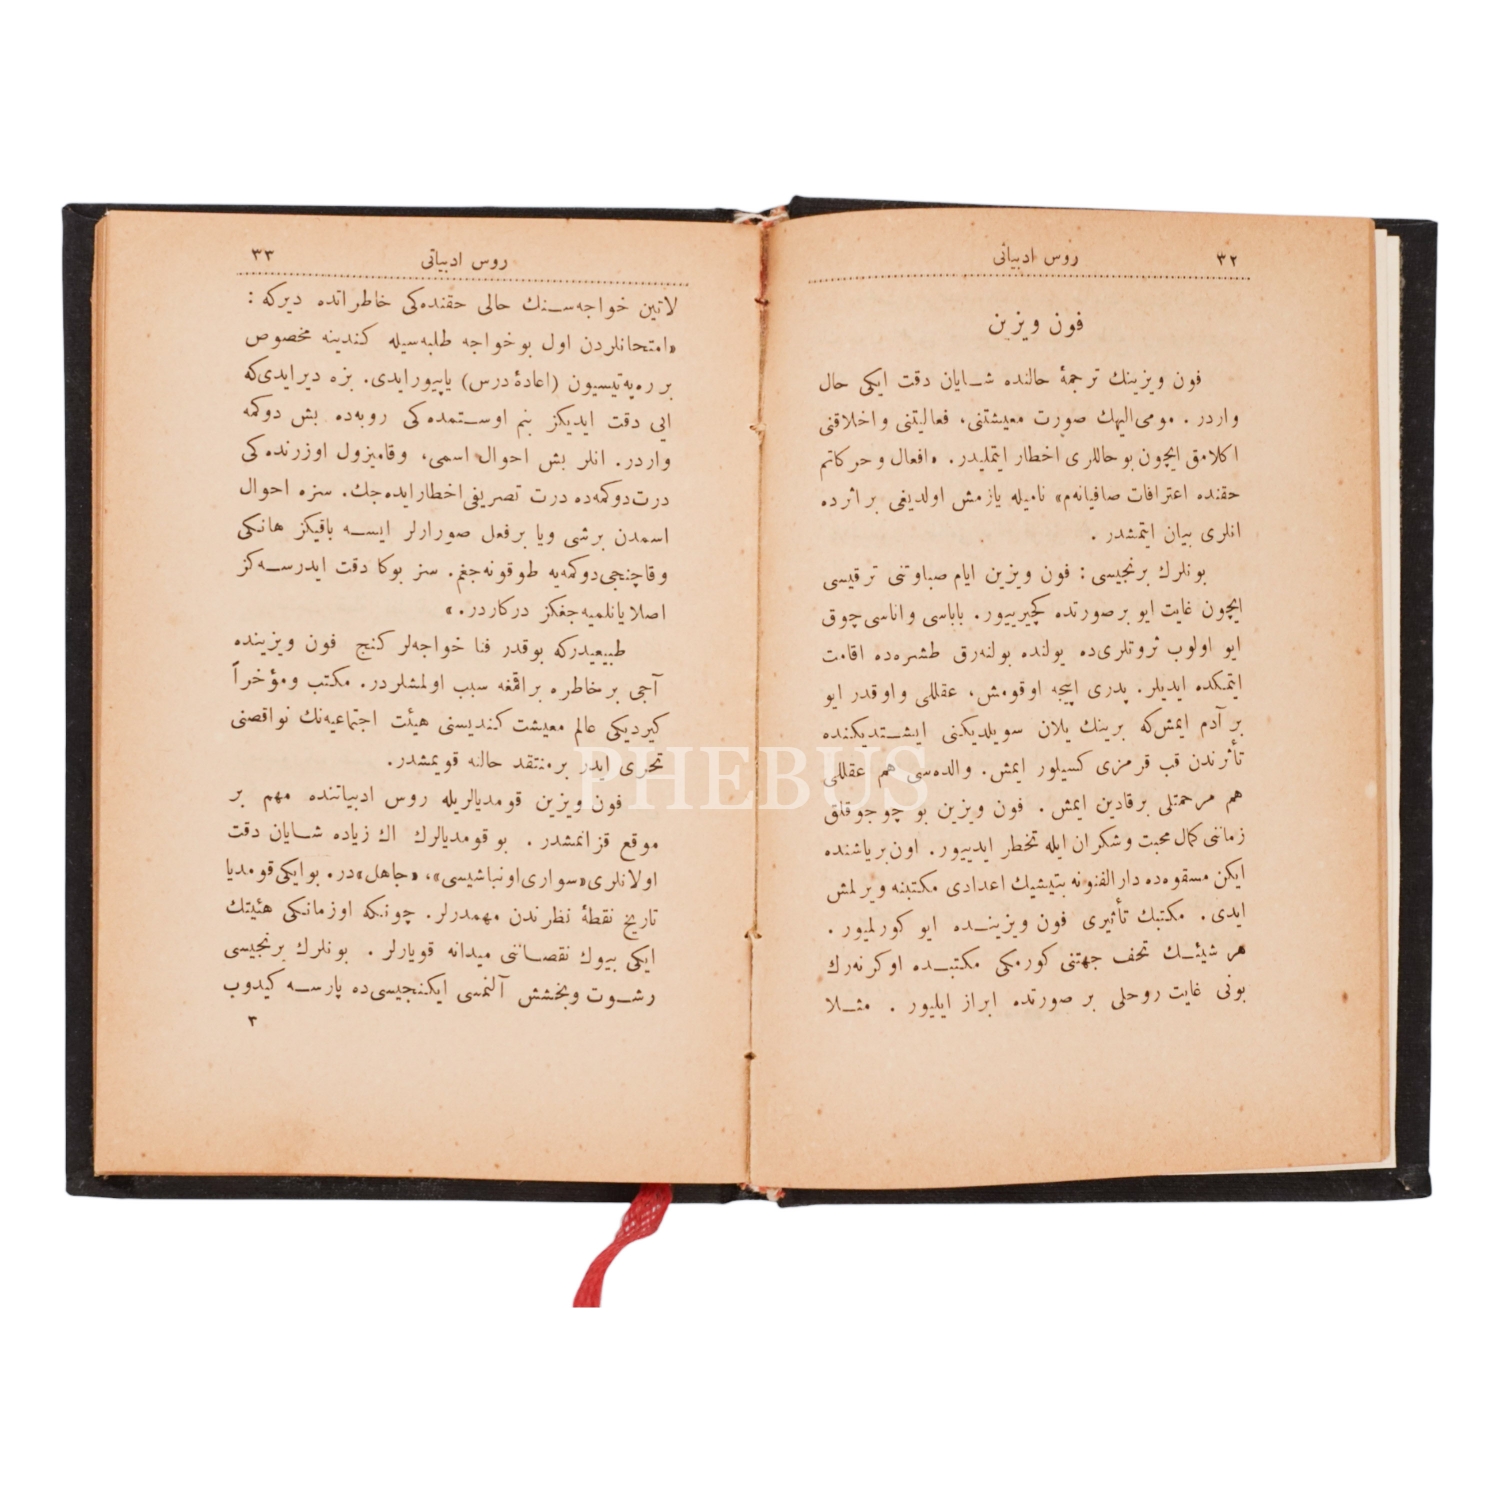 ٣٢
روس ادبياتى
فون ويزين
فون ويزينك ترجمۀ حالنده شــايان دقت ايكى حال
واردر . مومى‌اليهك صورت معيشتنى، فعاليتنى و اخلاقنى
اكلامق ايچون بو حاللرى اخطار ايتمليدر. «افعال و حركاتم
حقنده اعترافات صافيانه‌م» ناميله يازمش اولديغى بر اثرده
انلرى بيان ايتمشدر .
بونلرك برنجيسى : فون ويزين ايام صباوتنى ترقيسى
ايچون غايت ايو بر صورتده كچيرييور. باباسى و اناسى چوق
ايو اولوب ثروتلرى‌ده يولنده بولنه‌رق طشره‌ده اقامت
ايتمكده ايديلر. پدرى اييجه اوقومش، عقللى و اوقدر ايو
بر آدم ايمش‌كه برينك يلان سويلديكنى ايشــتديكنده
تأثرندن قب قرمزى كسيلور ايمش. والده‌سى هم عقللى
هم مرحمتلى برقادين ايمش . فون ويزين بو چوجوقلق
زماننى كمال محبت و شكران ايله تخطر ايدييور. اون‌برياشنده
ايكن مسقوه‌ده دارالفنونه يتيشيك اعدادى مكتبنه ويرلمش
ايدى. مكتبك تأثيرى فون ويزينــده ايو كورلميور .
هر شيئــك تحف جهتنى كورمكى مكتبــده اوكرنه‌رك
بونى غايت روحلى بر صورتده ابراز ايليور . مثــلا
روس ادبياتى
٣٣
لاتين خواجه‌ســنك حالى حقنده‌كى خاطراتده ديركه :
«امتحانلردن اول بوخواجه طلبه‌سيله كندينه مخصوص
بر ره‌په‌تيسيون (اعادۀ درس) ياپيورايدى. بزه ديرايدى‌كه
ايى دقت ايديكز بنم اوســتمده‌كى روبه‌ده بش دوكمه
واردر. انلر بش احوال اسمى، وقاميزول اوزرنده‌كى
درت‌دوكمه‌ده درت تصريفى اخطارايده‌جك. سزه احوال
اسمدن برشى ويا برفعل صورارلر ايســه باقيكز هانكى
وقاچنجى‌دوكمه‌يه طوقونه‌جغم. سز بوكا دقت ايدرســه‌كز
اصلا يانلميه‌جغكز دركاردر.»
طبيعيدركه بوقدر فنا خواجه‌لر كنج فون ويزينده
آجى بر مخاطره براقمغه سبب اولمشلردر. مكتب و مؤخراً
كيرديكى عالم معيشت كنديسنى هيئت اجتماعيه‌نك نواقصنى
تحرى ايدر بر منتقد حالنه قويمشدر.
فون ويزين قومديالريله روس ادبياتنده مهم بر
موقع قزانمشدر . بو قومديالرك اك زياده شــايان دقت
اولانلرى «سوارى اونباشيسى»، «جاهل»در. بوايكى قومديا
تاريخ نقطۀ نظرندن مهمدرلر. چونكه اوزمانكى هئيتك
ايكى بيوك نقصــاننى ميدانه قويارلر . بونلرك برنجيسى
رشــوت و بخشش آلنمسى ايكنجيسى‌ده پارســه كيدوب
٣
PHEBUS